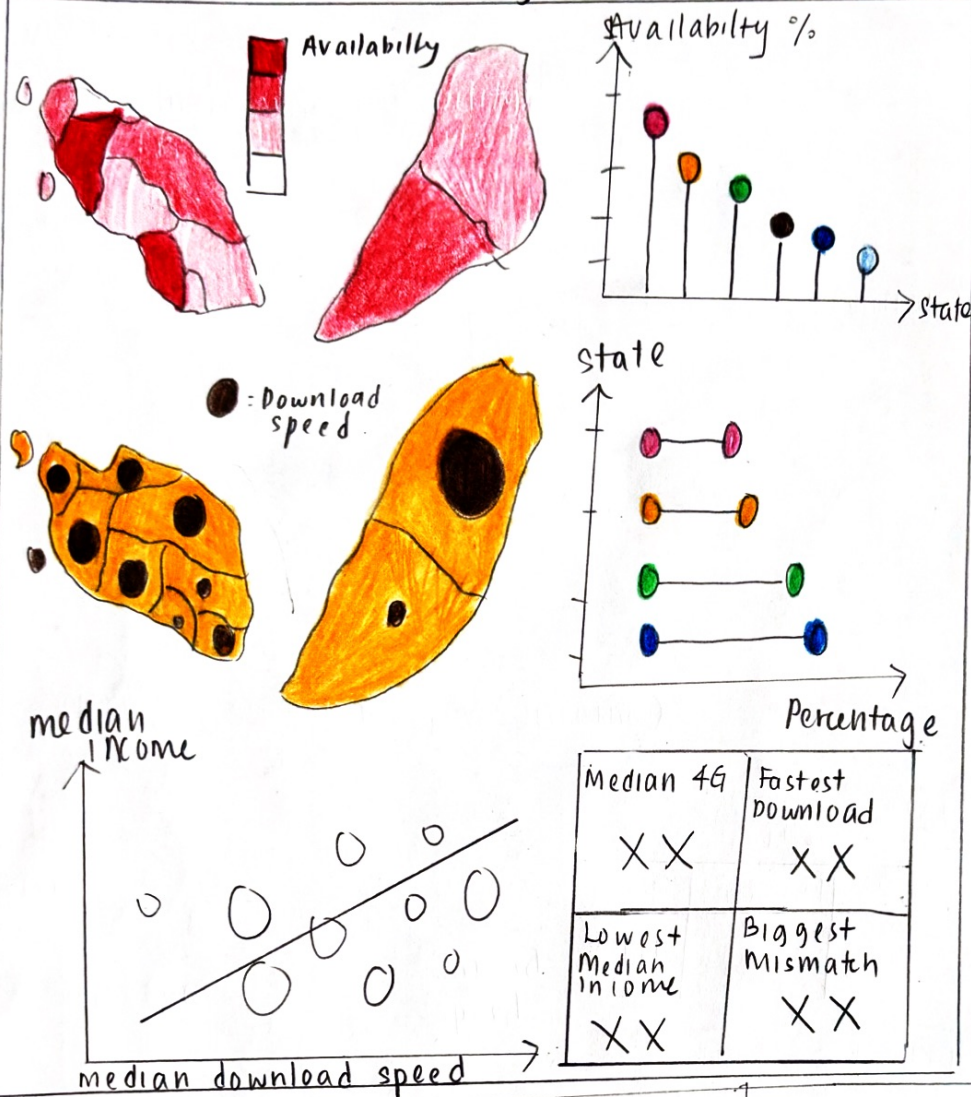 Availabilty
Availabilty %
State
: Download
speed.
state
Percentage
median
income
median download speed
Median 4G
X X
Fastest
Download
X X
Lowest
Median
Income
X X
Biggest
Mismatch
X X